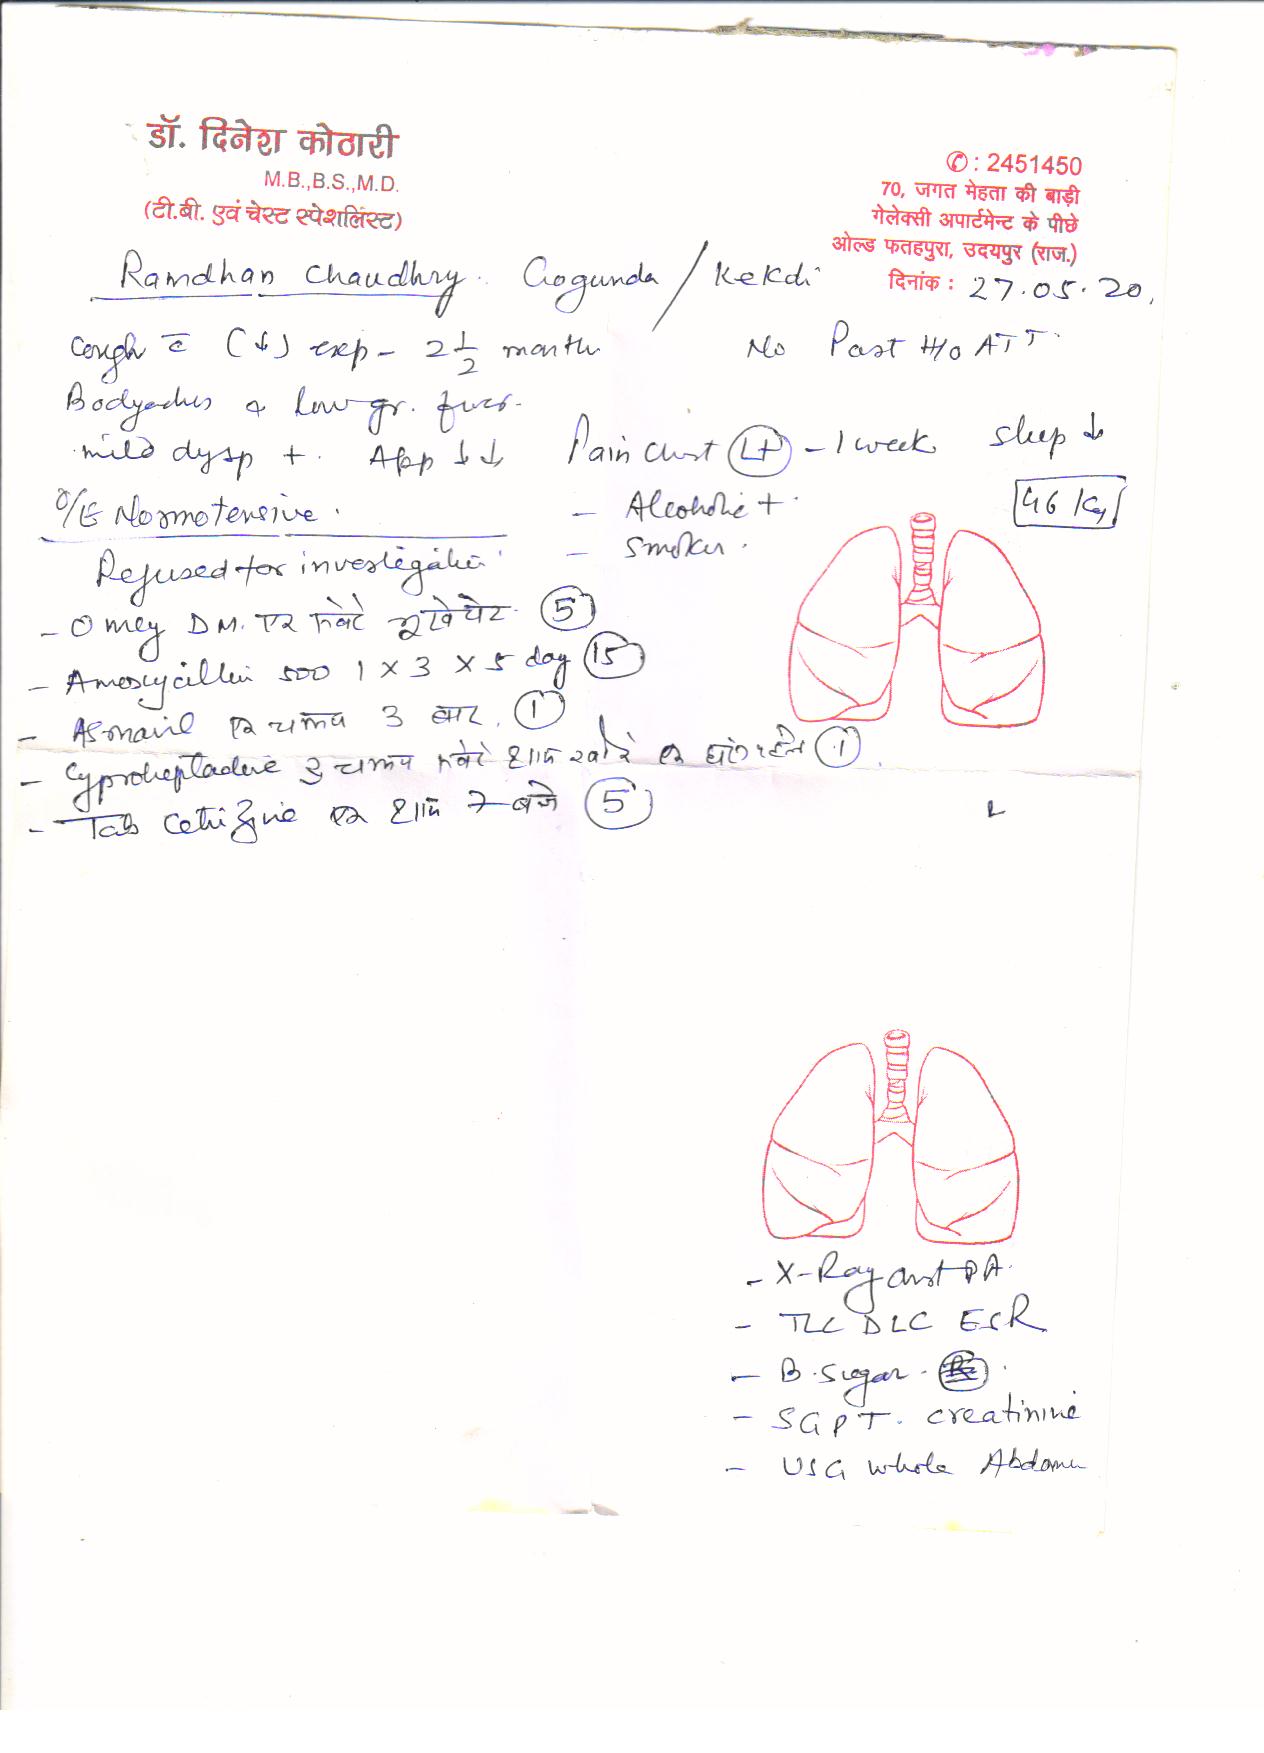 डॉ. दिनेश कोठारी
M.B.,B.S.,M.D.
(टी.बी. एवं चेस्ट स्पेशलिस्ट)
✆ : 2451450
70, जगत मेहता की बाड़ी
गेलेक्सी अपार्टमेन्ट के पीछे
ओल्ड फतहपुरा, उदयपुर (राज.)
दिनांक : 27.05.20.
Ramdhan Chaudhry. Gogunda / Kekdi
Cough c̄ (↓) exp - 2 1/2 month
No Past H/o ATT.
Bodyaches & low gr. fever.
mild dysp +. App ↓↓ Pain chest (Lt) - 1 week sleep ↓
46 Kg
O/E Normotensive.
- Alcoholic +.
- Smoker.
Refused for investigation
- Omey DM. एक सवेरे भूखे पेट (5)
- Amoxycillin 500 1 x 3 x 5 day (15)
- Asmanil एक चम्मच 3 बार. (1)
- Cyproheptadine चम्मच सवेरे शाम खाने एक घंटे पहले (1)
- Tab Cetrizine एक शाम 7 बजे (5)
- X-Ray Chest PA.
- TLC DLC ESR
- B. Sugar.
- SGPT. Creatinine
- USG whole Abdomen